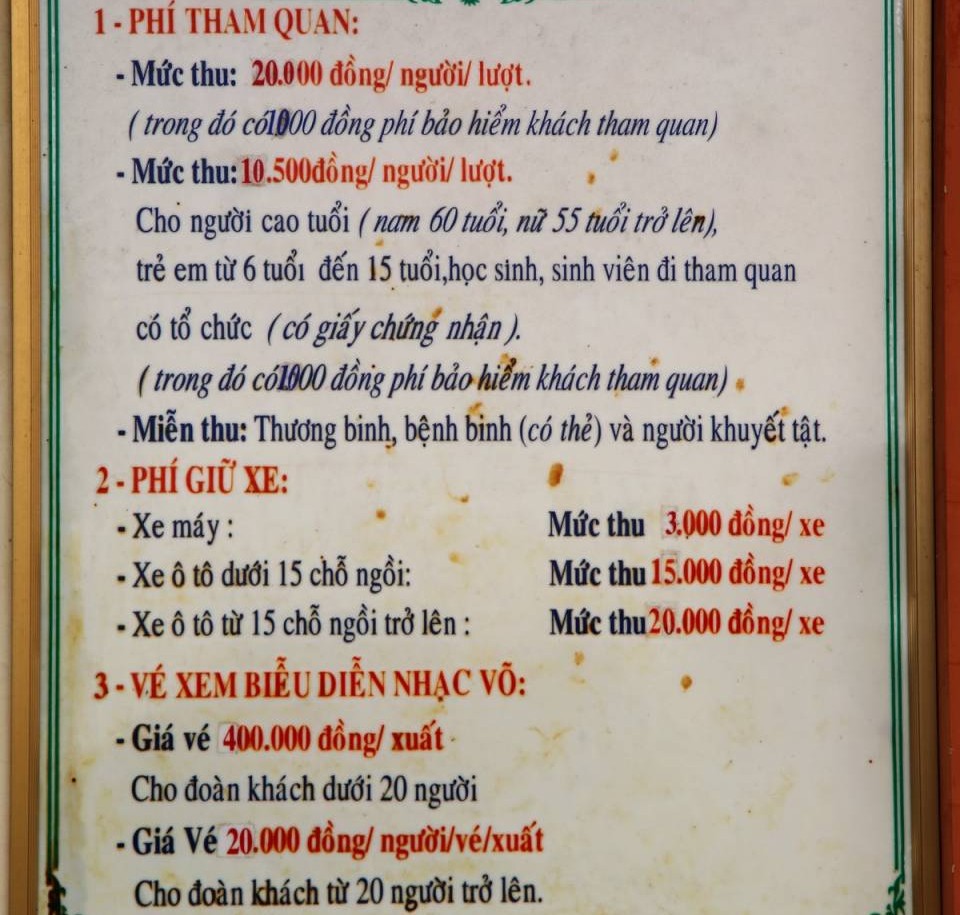 1 - PHÍ THAM QUAN:
- Mức thu: 20.000 đồng/ người/ lượt.
( trong đó có1000 đồng phí bảo hiểm khách tham quan)
- Mức thu:10.500đồng/ người/ lượt.
Cho người cao tuổi ( nam 60 tuổi, nữ 55 tuổi trở lên),
trẻ em từ 6 tuổi đến 15 tuổi,học sinh, sinh viên đi tham quan
có tổ chức ( có giấy chứng nhận ).
( trong đó có1000 đồng phí bảo hiểm khách tham quan)
- Miễn thu: Thương binh, bệnh binh (có thẻ) và người khuyết tật.
2 - PHÍ GIỮ XE:
- Xe máy : Mức thu 3.000 đồng/ xe
- Xe ô tô dưới 15 chỗ ngồi: Mức thu 15.000 đồng/ xe
- Xe ô tô từ 15 chỗ ngồi trở lên : Mức thu 20.000 đồng/ xe
3 - VÉ XEM BIỄU DIỄN NHẠC VÕ:
- Giá vé 400.000 đồng/ xuất
Cho đoàn khách dưới 20 người
- Giá Vé 20.000 đồng/ người/vé/xuất
Cho đoàn khách từ 20 người trở lên.